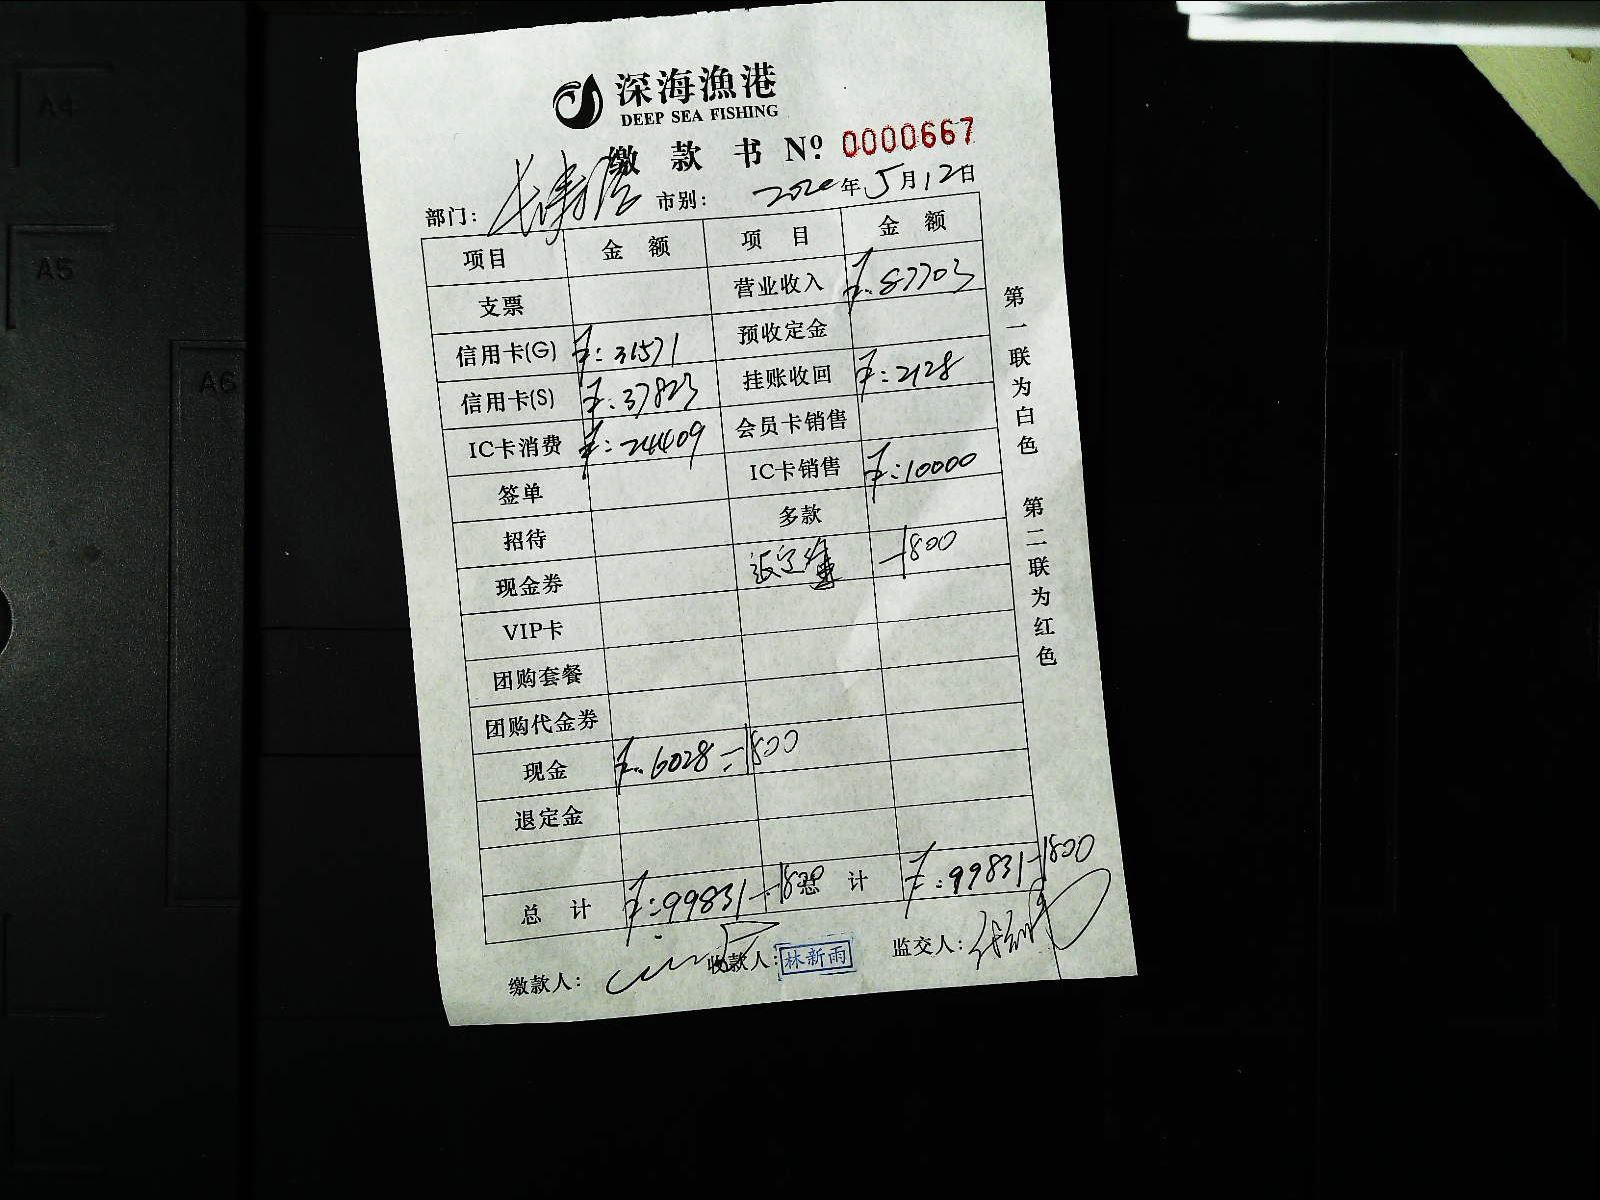 A4
A5
A6
深海漁港
DEEP SEA FISHING
缴款书 Nº. 0000667
部门: 市别: 2020年5月12日
项目 金额 项目 金额
支票 营业收入 ¥:87703
信用卡(G) ¥:31571 预收定金
信用卡(S) ¥:37823 挂账收回 ¥:2128
IC卡消费 ¥:24409 会员卡销售
签单 IC卡销售 ¥:10000
招待 多款
现金券 -1800
VIP卡
团购套餐
团购代金券
现金 ¥:6028-1800
退定金
总计 ¥:99831-1800 总计 ¥:99831-1800
缴款人: 收款人: 林新雨 监交人:
第一联为白色 第二联为红色